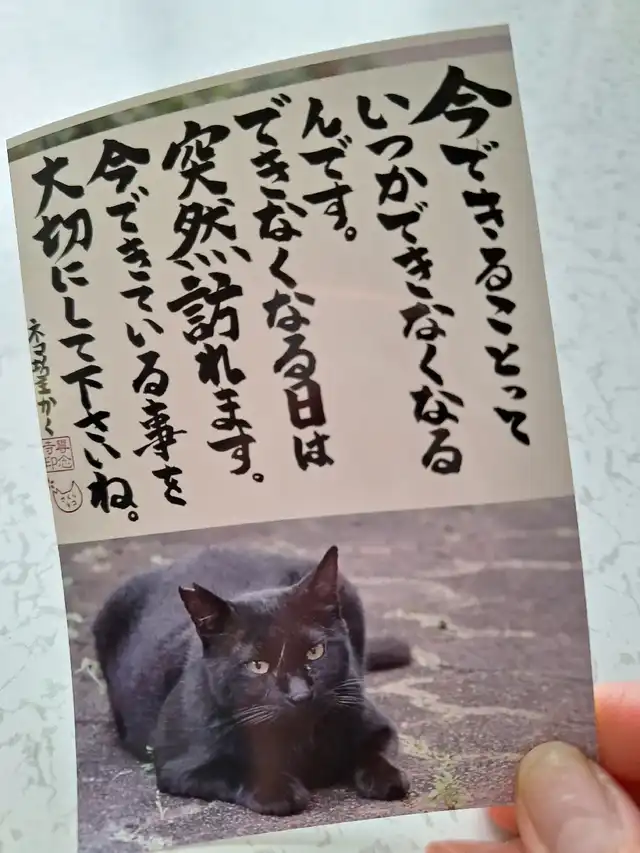 今できることって
いつかできなくなる
んです。
できなくなる日は
突然訪れます。
今できている事を
大切にして下さいね。
ネコ坊主かく